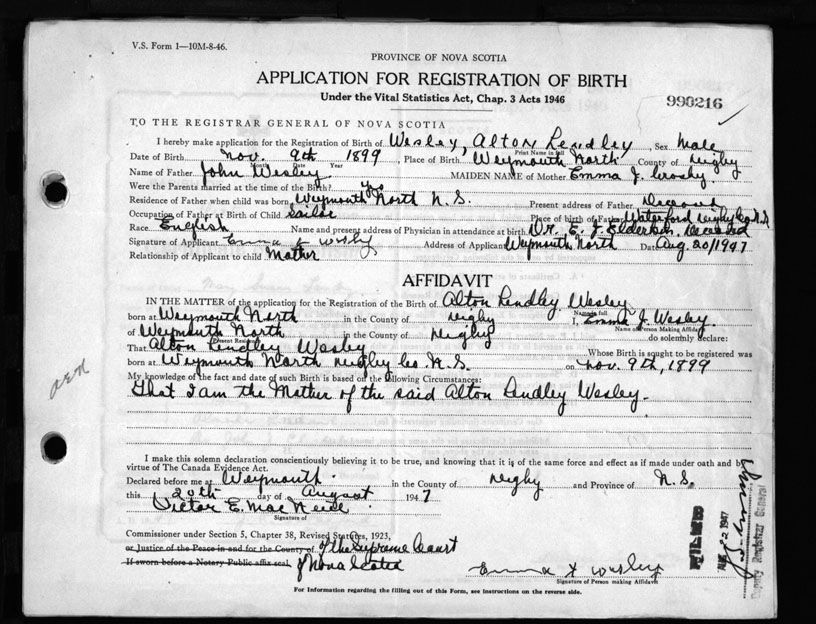 V.S. Form 1—10M-8-46.
PROVINCE OF NOVA SCOTIA
APPLICATION FOR REGISTRATION OF BIRTH
Under the Vital Statistics Act, Chap. 3 Acts 1946
990216
TO THE REGISTRAR GENERAL OF NOVA SCOTIA
I hereby make application for the Registration of Birth of Wesley, Alton Lendley, Sex Male
Print Name in full
Date of Birth Nov. 9th 1899, Place of Birth Weymouth North County of Digby
Month Date Year
Name of Father John Wesley MAIDEN NAME of Mother Emma J. Crosby.
Were the Parents married at the time of the Birth? Yes
Residence of Father when child was born Weymouth North N.S. Present address of Father Deceased
Occupation of Father at Birth of Child Sailor Place of birth of Father Waterford Digby Co. N.S.
Race English Name and present address of Physician in attendance at birth Dr. E. J. Elderkin, Deceased
Signature of Applicant Emma J Wesley Address of Applicant Weymouth North Date Aug. 20/1947
Relationship of Applicant to child Mother
AFFIDAVIT
IN THE MATTER of the application for the Registration of the Birth of Alton Lendley Wesley
Name in full
born at Weymouth North in the County of Digby I, Emma J. Wesley.
Name of Person Making Affidavit
of Weymouth North in the County of Digby do solemnly declare:
Present Residence
That Alton Lendley Wesley Whose Birth is sought to be registered was
born at Weymouth North Digby Co. N.S. on Nov. 9th, 1899
My knowledge of the fact and date of such Birth is based on the following Circumstances:
That I am the Mother of the said Alton Lendley Wesley.
I make this solemn declaration conscientiously believing it to be true, and knowing that it is of the same force and effect as if made under oath and by
virtue of The Canada Evidence Act.
Declared before me at Weymouth in the County of Digby and Province of N.S.
this 20th day of August 1947
Victor E. MacNeill
Signature of
Commissioner under Section 5, Chapter 38, Revised Statutes, 1923,
or Justice of the Peace in and for the County of of the Supreme Court
If sworn before a Notary Public affix seal. of Nova Scotia
Emma J Wesley
Signature of Person making Affidavit
For Information regarding the filling out of this Form, see instructions on the reverse side.
Deputy Registrar General